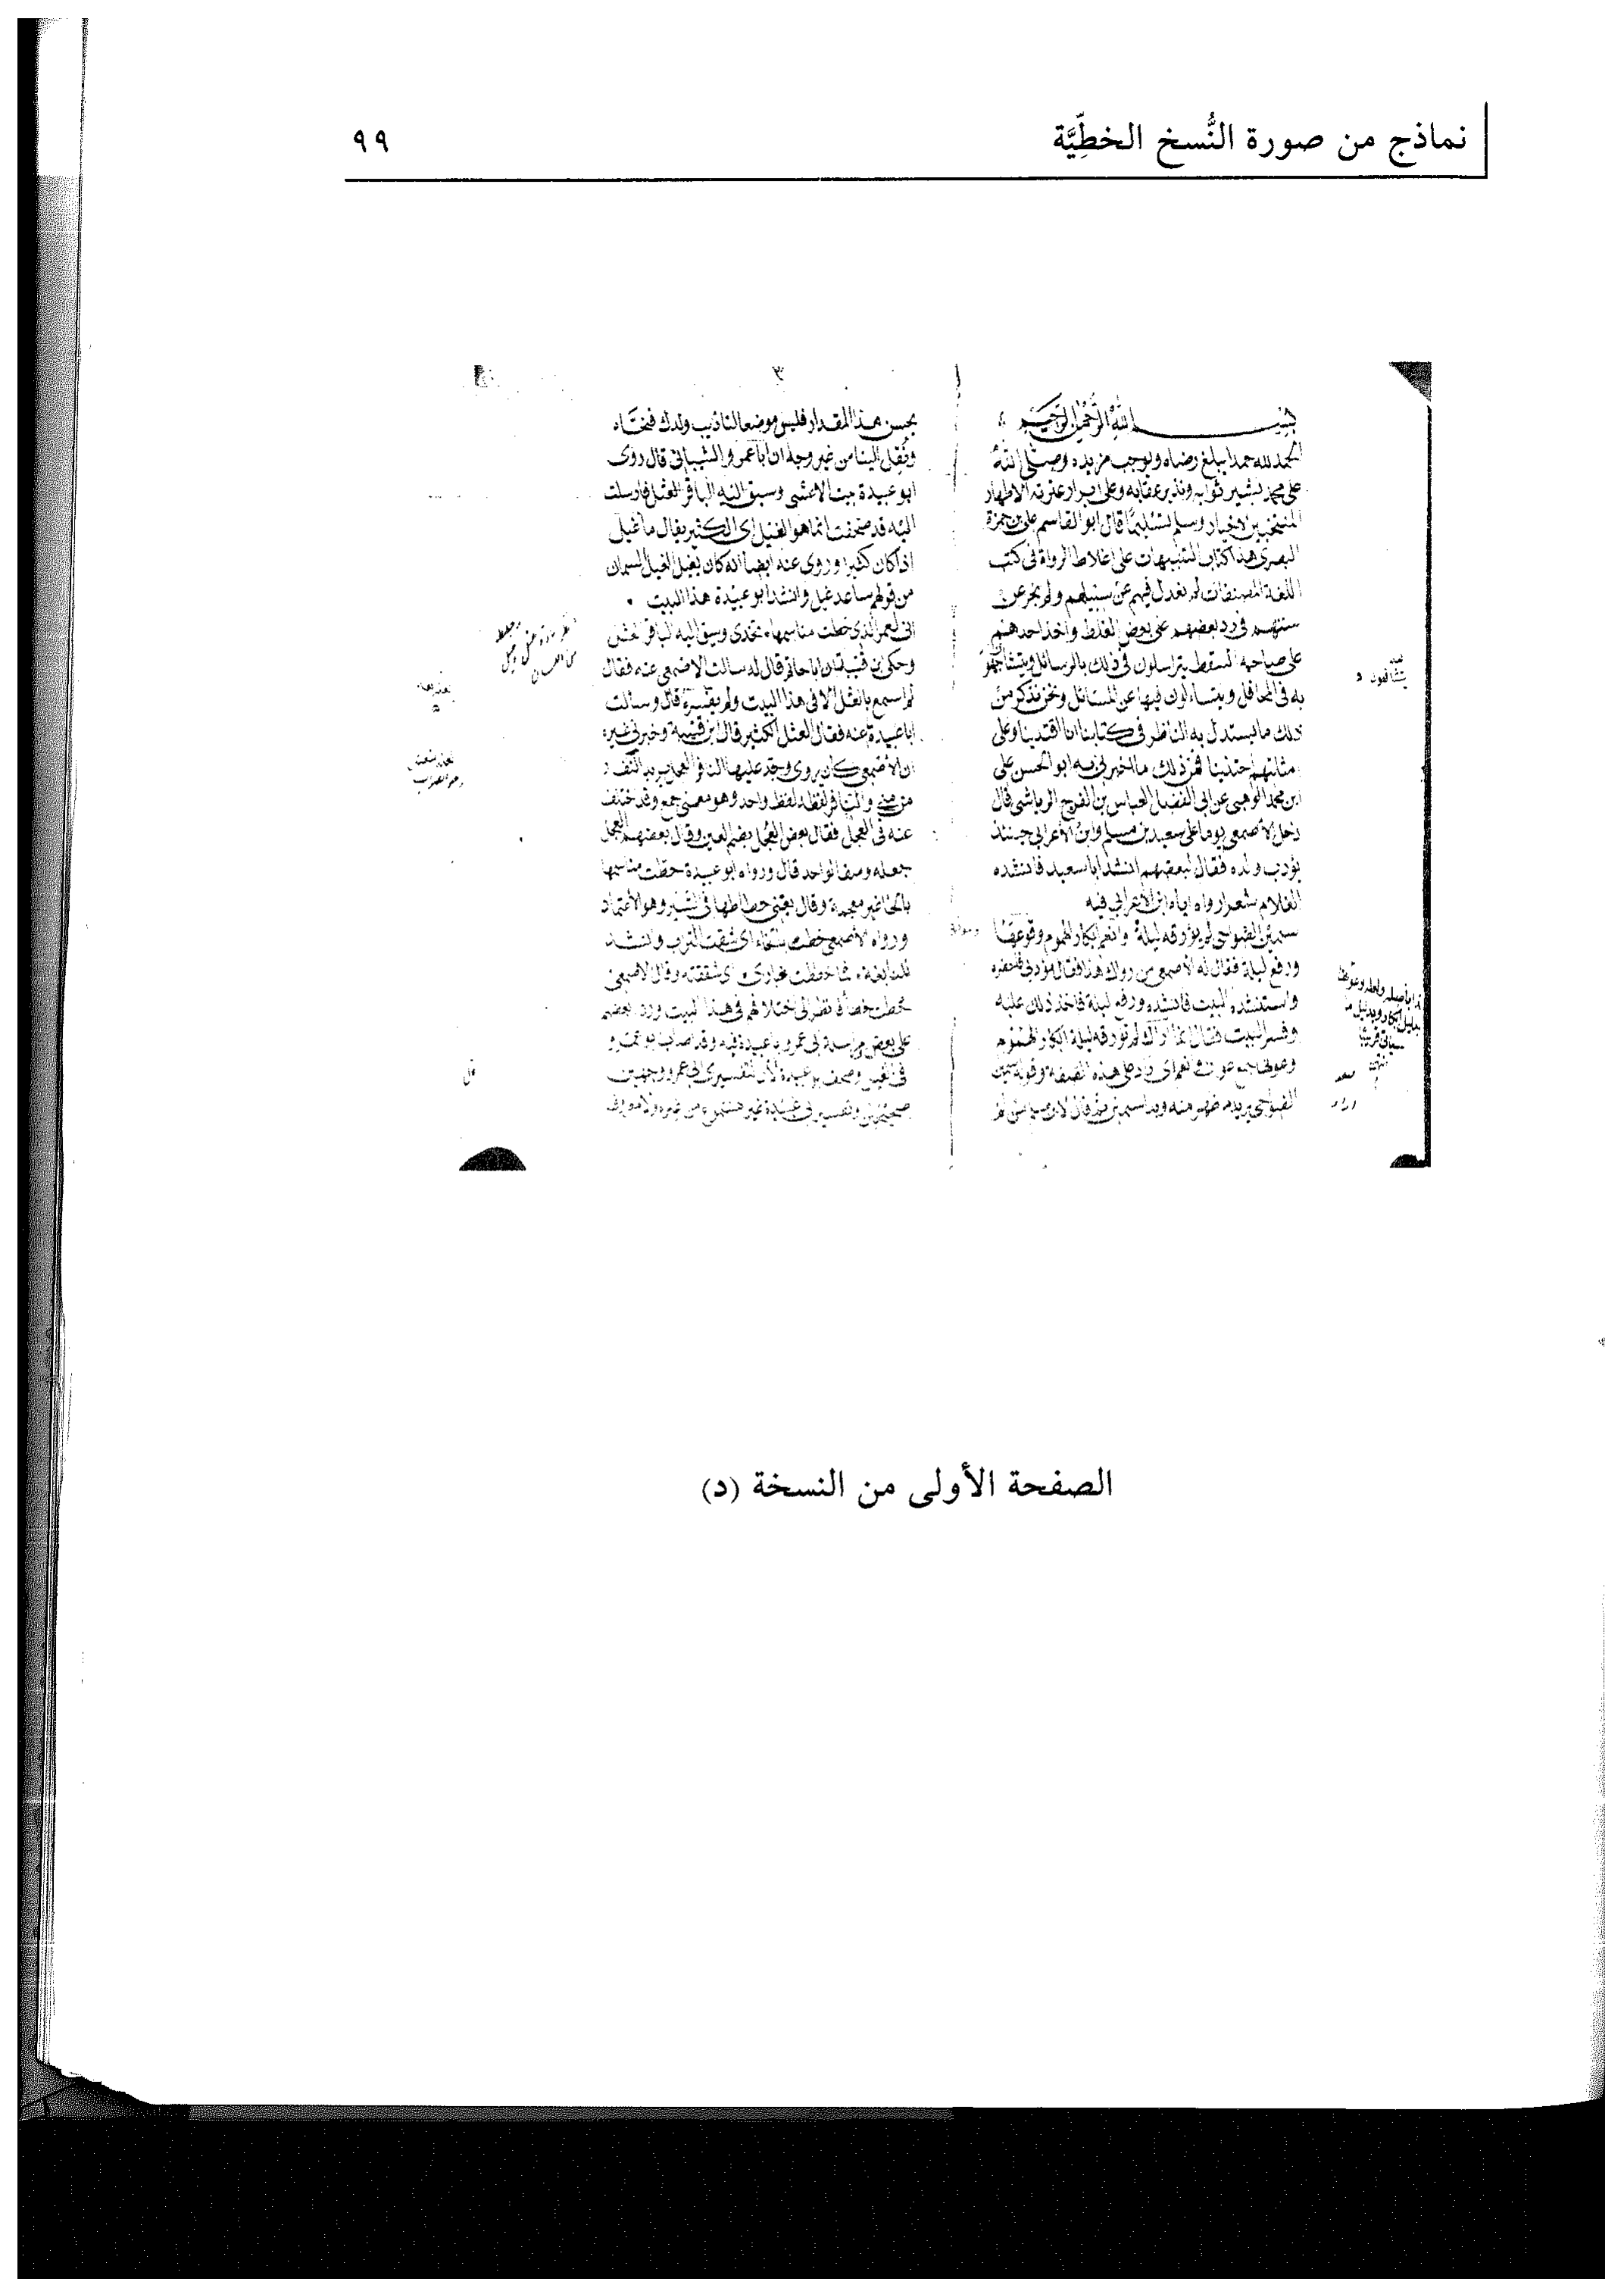 نماذج من صورة النُّسخ الخطِّيَّة
٩٩
بسم الله الرحمن الرحيم
الحمد لله حمدا يبلغ رضاه ويوجب مزيده وصلى الله
على محمد بشير ثوابه ونذير عقابه وعلى ابرار عترته الاطهار
المنتخبين الاخيار وسلم تسليما قال ابو القاسم على بن حمزة
البصرى هذا كتاب التنبيهات على اغلاط الرواة فى كتب
اللغة المصنفات لم نعدل فيهم عن سبيلهم ولم نجر عن
سنتهم فى رد بعضهم على بعض الغلط واخذ احدهم
على صاحبه السقط يتراسلون فى ذلك بالرسائل
به فى المحافل ويتساءلون فيها عن المسائل ونحن نذكر من
ذلك ما يستدل به الناظر فى كتابنا انا اقتدينا وعلى
مثالهم احتذينا فمن ذلك ما اخبرنى به ابو الحسن على
ابن محمد الوهبى عن ابى الفضل العباس بن الفرج الرياشى قال
دخل الاصمعى يوما على سعيد بن مسلم وابن الاعرابى حينئذ
يؤدب ولده فقال لبعضهم انشد ابا سعيد فانشده
الغلام شعرا رواه اياه ابن الاعرابى فيه
سمين الضواحى لم يؤرقه ليلة وانعم ابكار الهموم وعونها
ورفع ليلة فقال له الاصمعى من رواك هذا فقال مؤدبى فاحضره
واستنشده البيت فانشده ورفع ليلة فاخذ ذلك عليه
وفسر البيت فقال انما اراد لم تؤرقه ليلة ابكار الهموم
وعونها جمع عوان وانعم اى زاد على هذه الصفة وقوله سمين
الضواحى يريد ما ظهر منه وبدا سمين ثم قال لابن
٣
يحسن هذا المقدار فليس موضعا لتأديب ولدك فنحاه
ونقل الينا من غير وجه ان ابا عمرو الشيبانى قال روى
ابو عبيدة بيت الاعشى وسيق اليه الباقر العثل فارسلت
اليه قد صحفت انما هو الغيل اى الكثير يقال ماء غيل
اذا كان كثيرا وروى عنه ايضا انه كان يقول الغيل السمان
من قولهم ساعد غيل وانشد ابو عبيدة هذا البيت
انى لعمر الذى حطت مناسمها تخدى وسيق اليه الباقر العثل
وحكى ابن قتيبة ان ابا حاتم قال له سالت الاصمعى عنه فقال
لم اسمع بالعثل الا فى هذا البيت ولم يفسره قال وسالت
ابا عبيدة عنه فقال العثل الكثير قال ابن قتيبة وخبرنى غيره
ان الاصمعى كان يروى وجد عليها النافر العجل يريد النفر
من منى والنافر لفظه لفظ واحد وهو معنى جمع وقد اختلف
عنه فى العجل فقال بعض العُجُل بضم العين وقال بعضهم العجل
جعله وصفا لواحد قال ورواه ابو عبيدة حطت مناسمها
بالحاء غير معجمة وقال يعنى حطاطها فى السير وهو الاعتماد
ورواه الاصمعى خطت بالخاء اى شقت التراب وانشد
للنابغة فما خططت غبارى اى شققته وقال الاصمعى
على بعض مراسلة ابى عمرو ابا عبيدة فيه وقد اصاب ابو عمرو
الصفحة الأولى من النسخة (د)